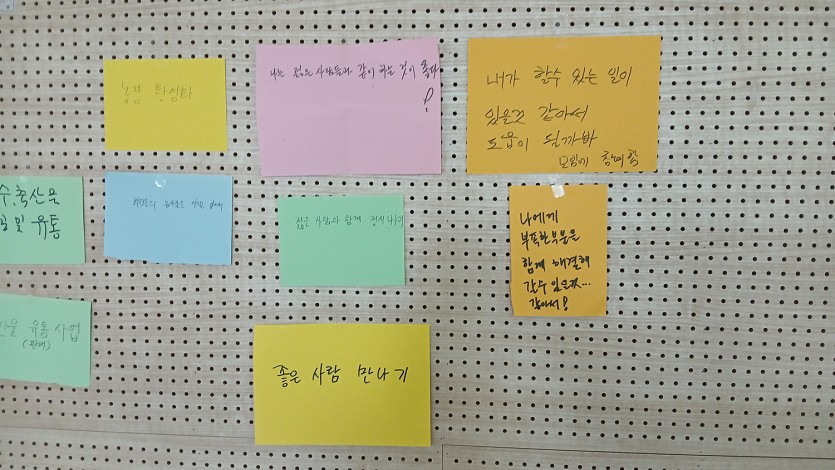 농장 활성화
나는 젊은 사람들과 같이 하는 것이 좋다
!
내가 할수 있는 일이
있을것 같아서
도움이 될까봐
모임에 참여함
수,축산물
및 유통
젊은 사람과 함께 정서 나누기
나에게
부족한부분을
함께 해결해
갈수 있을것...
같아서!
유통 사업
(판매)
좋은 사람 만나기